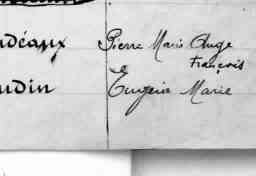 déaux Pierre Marie Ange
François
udin Eugène Marie